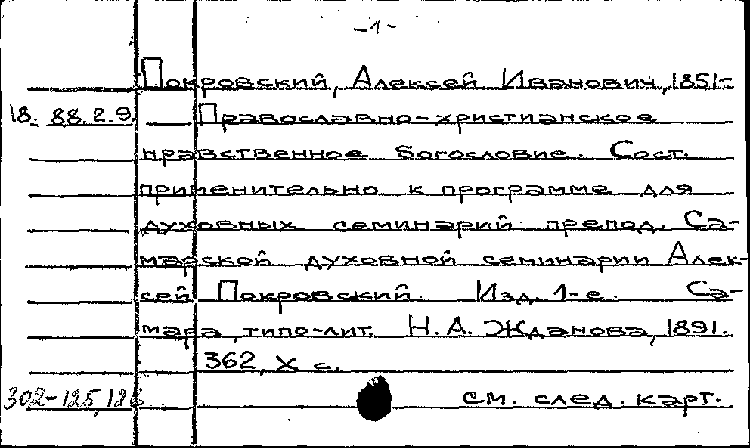 -1-
Покровский, Алексей Иванович, 1851-
18. 88. 2. 9. Православно-христианское
нравственное богословие. Сост.
применительно к программе для
духовных семинарий препод. Са-
марской духовной семинарии Алек-
сей Покровский. Изд. 1-е. Са-
мара, типо-лит. Н. А. Жданова, 1891.
362, X с.
302-125,126 см. след. карт.